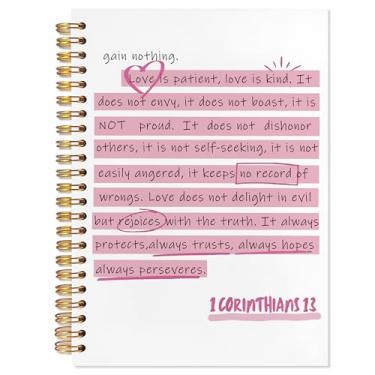 gain nothing.
Love is patient, love is kind. It
does not envy, it does not boast, it is
NOT proud. It does not dishonor
others, it is not self-seeking, it is not
easily angered, it keeps no record of
wrongs. Love does not delight in evil
but rejoices with the truth. It always
protects,always trusts, always hopes
always perseveres.
1 CORINTHIANS 13